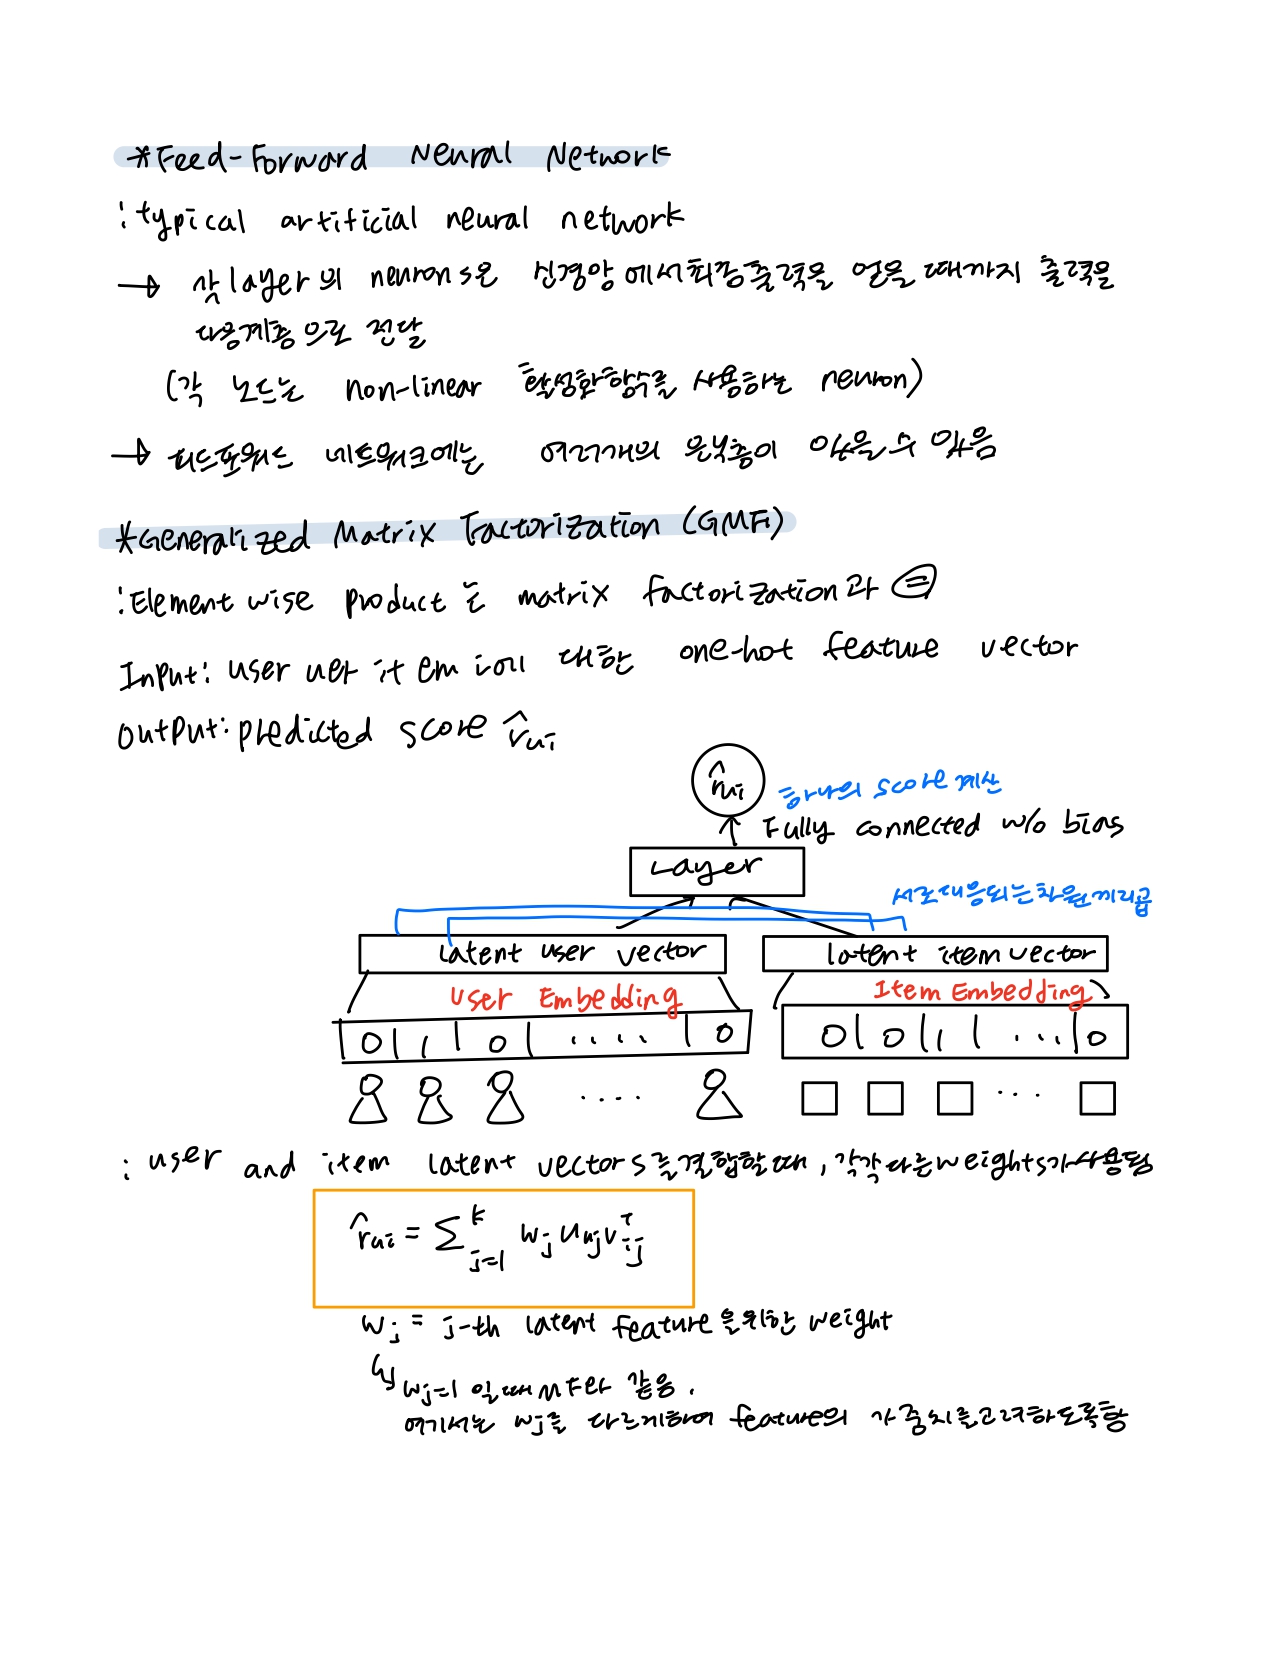 *Feed-Forward Neural Network
: typical artificial neural network
→ 각 layer의 neurons은 신경망에서 최종출력을 얻을 때까지 출력을
다음계층으로 전달
(각 노드는 non-linear 활성화함수를 사용하는 neuron)
→ 피드포워드 네트워크에는 여러개의 은닉층이 있을 수 있음
*Generalized Matrix Factorization (GMF)
: Element wise product는 matrix factorization과 =
Input: user u와 item i에 대한 one-hot feature vector
output: predicted score r̂ui
r̂ui
하나의 score 계산
Fully connected w/o bias
Layer
서로대응되는차원끼리곱
Latent user vector
Latent item vector
User Embedding
Item Embedding
0 | 1 | 0 | .... | 0
0 | 0 | 1 | ... | 0
....
...
: user and item latent vectors를결합할때, 각각다른weights가사용됨
r̂ui = ∑ᵏj=1 wj uuj vᵀij
wj = j-th latent feature을위한 weight
↳ wj=1 일때 MF와 같음.
여기서는 wj를 다르게하여 feature의 가중치를고려하도록함